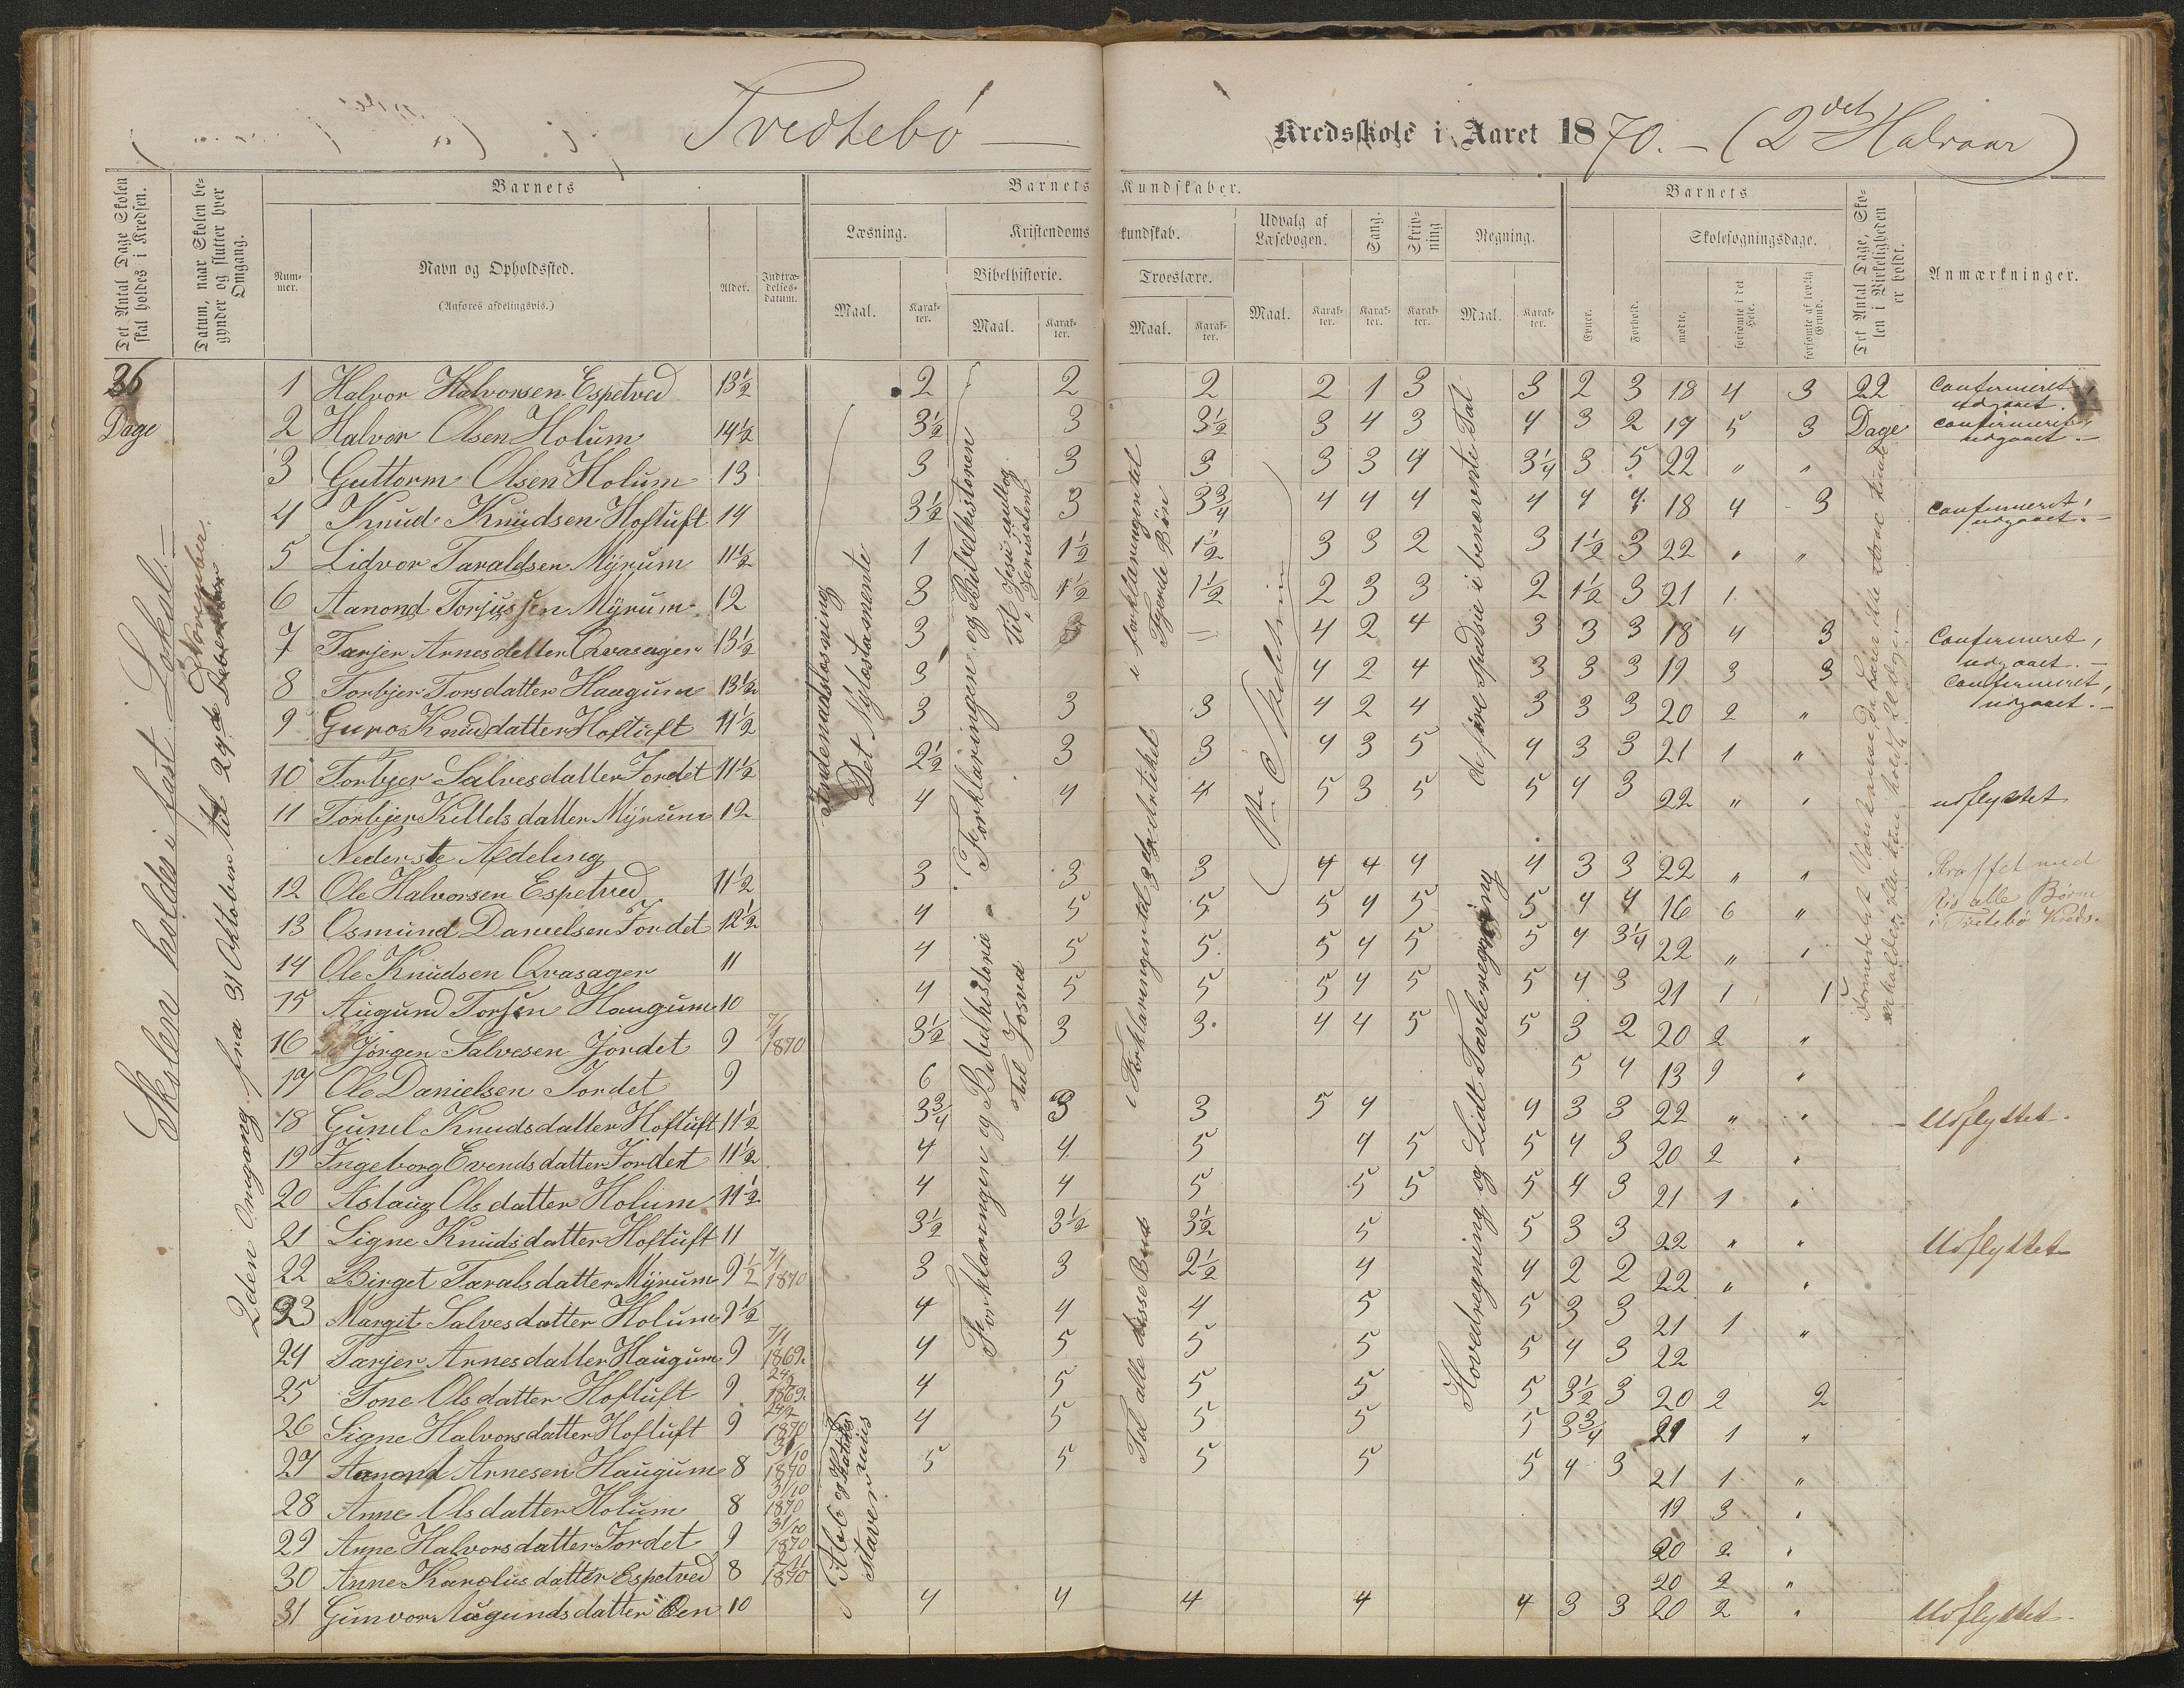 Tvedtebö — Kredsskole i Aaret 1870. — (2det Halvaar)
Det Antal Dage Skolen skal holdes i Kredsen.
Datum, naar Skolen begynder og slutter hver Omgang.
Barnets
Nummer.
Navn og Opholdssted.
(Anføres afdelingsvis.)
Alder.
Indtrædelsesdatum.
Barnets Kundskaber.
Læsning.
Maal.
Karakter.
Kristendomskundskab.
Bibelhistorie.
Maal.
Karakter.
Troeslære.
Maal.
Karakter.
Udvalg af Læsebogen.
Maal.
Karakter.
Sang.
Karakter.
Skrivning
Karakter.
Regning.
Maal.
Karakter.
Barnets
Evner.
Forhold.
Skolesøgningsdage.
mødte.
forsømte i det Hele.
forsømte af lovlig Grund.
Det Antal Dage, Skolen i Virkeligheden er holdt.
Anmærkninger.
36 Dage
Skolen holdes i fast Lokal. —
2den Omgang fra 31 Oktober til 29de November.
1 Halvor Halvorsen Espetved 13½ 2 2 2 2 1 3 3 2 3 18 4 3 22 Confirmeret, udgaaet.
2 Halvor Olsen Holum 14½ 3½ 3 3½ 3 4 3 4 3 2 17 5 3 Dage Confirmeret, udgaaet. —
3 Guttorm Olsen Holum 13 3 3 3 3 3 4 3¼ 3 5 22 " "
4 Knud Knudsen Hoftuft 14 3½ 3 3¾ 4 4 4 4 4 4 18 4 3 Confirmeret, udgaaet. —
5 Lidvor Taraldsen Myrum 11½ 1 1½ 1½ 3 3 2 3 1½ 3 22 " "
6 Aanond Torjussen Myrum 12 3 1½ 1½ 2 3 3 2 1½ 3 21 1
7 Tarjer Arnesdatter Qvasager 13½ 3 3 — 4 2 4 3 3 3 18 4 3 Confirmeret, udgaaet. —
8 Torbjer Torsdatter Haugum 13½ 3 4 2 4 3 3 3 19 3 3 Confirmeret, udgaaet. —
9 Guro Knudsdatter Hoftuft 11½ 3 3 3 4 2 4 3 3 3 20 2 "
10 Torbjer Salvesdatter Jordet 11½ 2½ 3 3 4 3 5 4 3 3 21 1 "
11 Torbjer Kittelsdatter Myrum 12 4 4 4 5 3 5 5 4 3 22 " " udflyttet
Nederste Afdeling
12 Ole Halvorsen Espetved 11½ 3 3 3 4 4 4 4 3 3 22 " "
13 Osmund Danielsen Jordet 12½ 4 5 5 5 4 5 5 4 4 16 6 "
14 Ole Knudsen Qvasager 11 4 5 5 5 4 5 5 4 3¼ 22 " "
15 Augund Torsen Haugum 10 4 5 5 5 4 5 5 4 3 21 1 1
16 Jørgen Salvesen Jordet 9 7/1 1870 3½ 3 3 4 4 5 5 3 2 20 2 "
17 Ole Danielsen Jordet 9 6 5 4 13 9 "
18 Gunil Knudsdatter Hoftuft 11½ 3¾ 3 3 5 4 4 3 3 22 " " Udflyttet.
19 Ingeborg Evendsdatter Jordet 11½ 4 4 5 4 5 5 4 3 20 2 "
20 Aslaug Olsdatter Holum 11½ 4 4 5 5 5 5 4 3 21 1 "
21 Signe Knudsdatter Hoftuft 11 3½ 3½ 3½ 5 5 3 3 22 " " Udflyttet
22 Birget Taralsdatter Myrum 9½ 7/1 1870 3 3 2½ 4 4 2 2 22 " "
23 Margit Salvesdatter Holum 9½ 4 4 4 5 5 3 3 21 1 "
24 Tarjer Arnesdatter Haugum 9 7/1 1869 4 5 5 5 5 4 3 22
25 Tone Olsdatter Hoftuft 9 1869 4 5 5 5 5 3½ 3 20 2 2
26 Signe Halvorsdatter Hoftuft 9 1870 4 5 5 5 5 3¾ 21 1 "
27 Aanond Arnesen Haugum 8 31/10 1870 5 5 5 5 5 4 3 21 1 "
28 Anne Olsdatter Holum 8 31/10 1870 19 3 "
29 Anne Halvorsdatter Jordet 9 31/10 1870 20 2 "
30 Anne Karolusdatter Espetved 8 1870 20 2 "
31 Gunvor Augundsdatter Øen 10 4 4 4 4 4 3 3 20 2 " Udflyttet.
Indenadslæsning
Det Nytestamente
Abc og Katekismus
staver
Forklaringen og Bibelhistorien
til Jesu indtog i Jerusalem
Forklaringen og Bibelhistorie
til Josva
i forklaringen til
Fjerde Bøn
i Forklaringen til 3die Artikel
Tal alle disse Bud
P. C. Skoletrin
de fire spedsie i benævnte Tal
Hovedregning og Lidt Tavleregning
Straffet med
Ris alle Børn
i Tvedtebö Kreds.